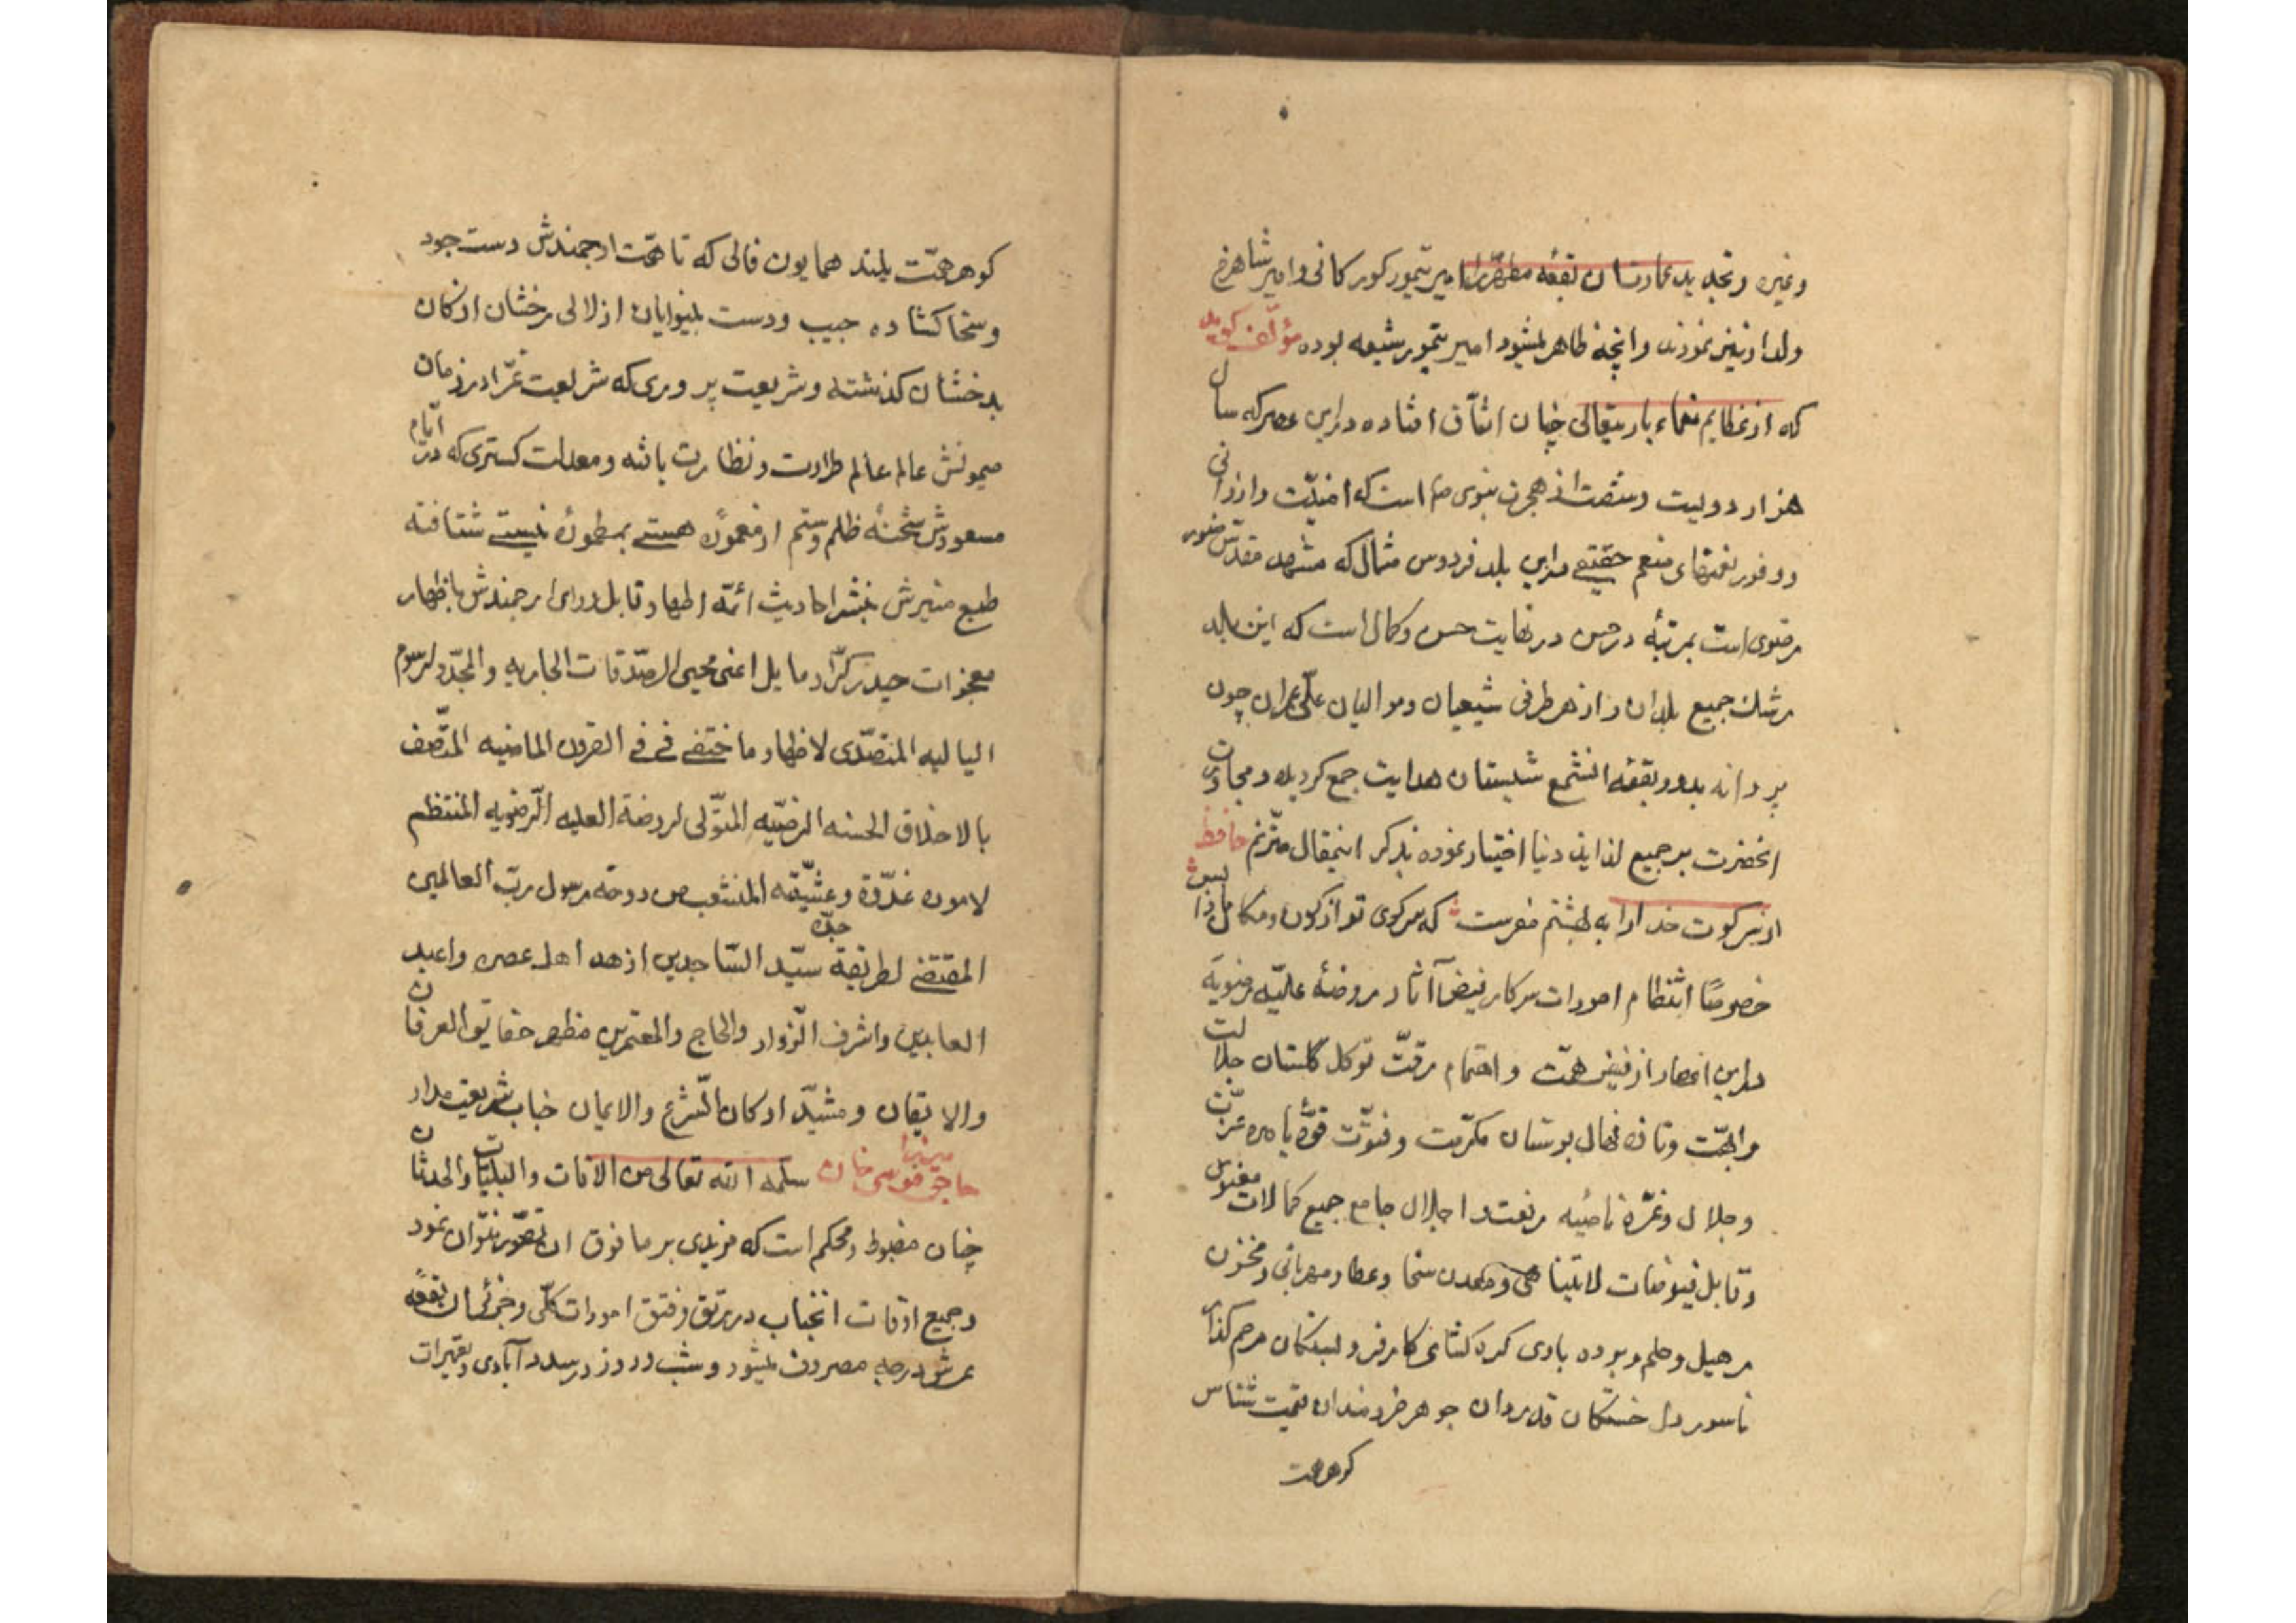 وغیره وتجدید عمارت ان بقعه مطهّررا امیر تیمور کورکانی وامیر شاهرخ
ولد او نیز نمودند وانچه ظاهر میشود امیر تیمور شیعه بوده مؤلف کوید
که از عظایم نعماء باریتعالی چنان اتّفاق افتاده دراین عصر که سال
هزار دویست وشصت از هجرت نبوی است که امنیّت وارزانی
ووفور نعمتهای منعم حقیقی دراین بلد فردوس مثال که مشهد مقدّس رضوی
مرضوی است بمرتبهٔ درحسن در نهایت حسن وکمال است که این بلد
رشک جمیع بلدان واز هر طرفی شیعیان وموالیان علیّ عمران چون
پروانه بدور بقعه انشمع شبستان هدایت جمع کردیده ومجاورت
انحضرت بر جمیع لذایذ دنیا اختیار نموده بذکر اینمقال مترّنم حافظ
از سر کویت خدارا به بهشتم مفرست که سر کوی تو از کون ومکان ما را بس
خصوصًا انتظام امورات سرکار فیض آثار روضهٔ علیّه رضویّه
دراین اعصار از فیض همّت واهتمام کل گلستان جلالت
وابهّت وتازه نهال بوستان مکرّمت وفتوّت قوّهٔ باصره عزّت
وجلال وغرّه ناصیه رفعت واجلال جامع جمیع کمالات معنوی
وقابل فیوضات لایتناهی ومعدن سخا وعطا ومهربانی ومخزن
وحلم وبرده باری کره کشای کار فرو بستکان مرهم کذار
ناسور دل خستکان قدردان جوهر خردمندان قیمت شناس
کوهر همت
کوهر همّت بلند همایون فالی که تا همّت ارجمندش دست جود
وسخا کشاده جیب ودست بینوایان از لالی رخشان از کان
بدخشان کذشته وشریعت پروری که شریعت غرّا در زمان
میمونش عالم عالم طراوت ونظارت یافته ومعدلت کستری که در ایّام
مسعودش شحنهٔ ظلم وستم از معمورٔه هستی بمطمورٔه نیستی شتافته
طبع منیرش بنشر احادیث ائمّه اطهار وتابل ورای ارجمندش باظهار
معجزات حیدر کرّار مایل اعنی محیی الصّدقات الجاریه والمجّدد لرسوم
البالیه المتصدّی لاظهار ما اختفی فی القرون الماضیه المتّصف
بالاخلاق الحسنه الرضیّه المتولّی لروضة العلیه الرّضویه المنتظم
لاموره غدّوة وعشیّة المنشعب من دوحة رسول ربّ العالمین
المقتفی لطریقة جدّه سیّد السّاجدین ازهد اهل عصره واعبد
العابدین واشرف الزّوار والحاج والمعتمرین مظهر حقایق العرفان
والایقان ومشیّد ارکان الشّرع والایمان جناب شریعت مدار
حاجی میرزا موسی خان سلّمه الله تعالی من الافات والبلیّات والحدثان
چنان مضبوط ومحکم است که مزیدی بر مافوق ان تصّور نتوان نمود
وجمیع اوقات انجناب در رتق وفتق امورات کلّی وجزئی ان بقعهٔ
عرش درجه مصروف میشود وشب وروز در سدد آبادی وتعمیرات